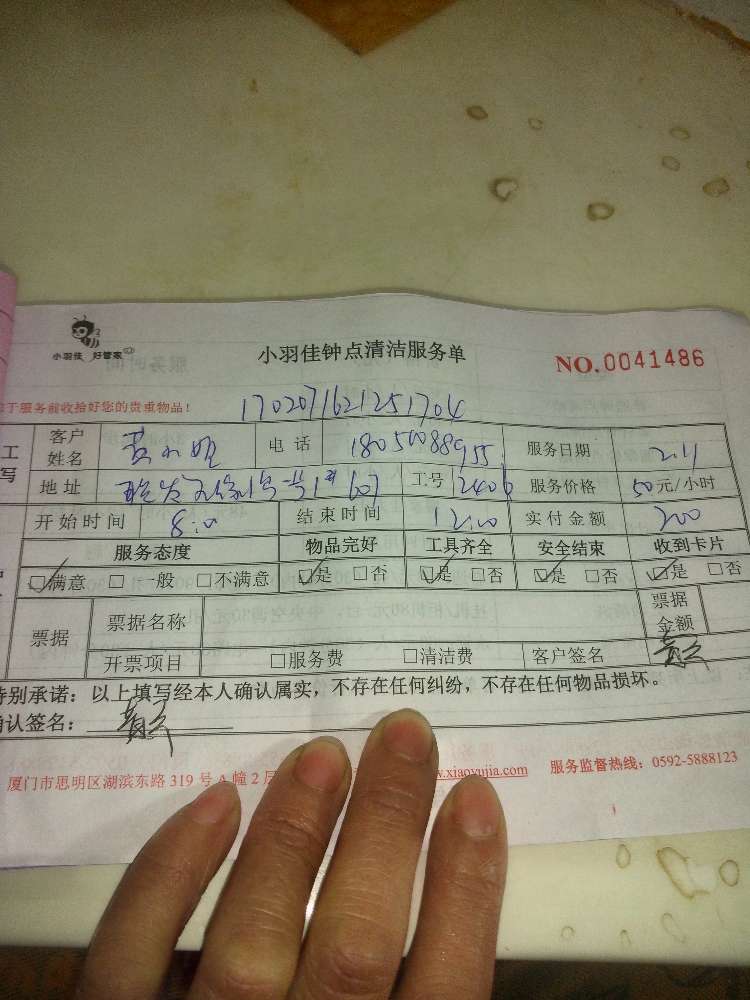 小羽佳 好管家
小羽佳钟点清洁服务单
NO.0041486
服务前收拾好您的贵重物品！
1702071621251704
客户姓名 电话 18050088955 服务日期 2.11
地址 工号 2406 服务价格 50元/小时
开始时间 8:00 结束时间 12:00 实付金额 200
服务态度 物品完好 工具齐全 安全结束 收到卡片
☑满意 □一般 □不满意 ☑是 □否 ☑是 □否 ☑是 □否 ☑是 □否
票据 票据名称 票据金额
开票项目 □服务费 □清洁费 客户签名
特别承诺：以上填写经本人确认属实，不存在任何纠纷，不存在任何物品损坏。
确认签名：
厦门市思明区湖滨东路 319 号 A 幢 2 层 www.xiaoyujia.com 服务监督热线：0592-5888123